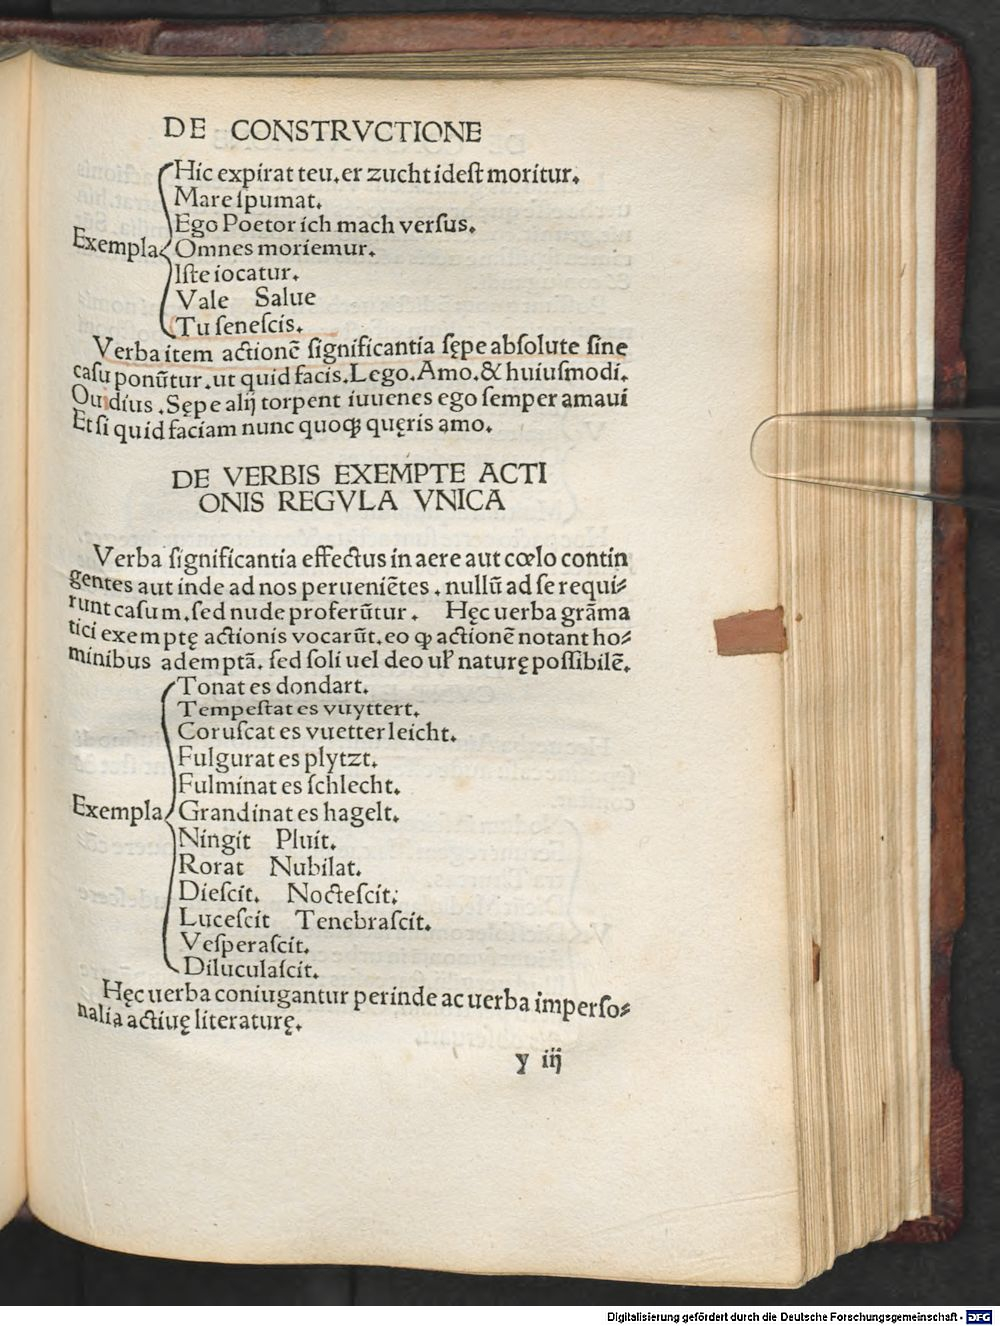 DE CONSTRVCTIONE
Hic expirat teu.er zucht ideſt moritur.
Mare ſpumat.
Ego Poetor ich mach verſus.
Exempla Omnes moriemur.
Iſte iocatur.
Vale Salue
Tu ſeneſcis.
Verba item actionē ſignificantia ſępe abſolute ſine
caſu ponūtur.ut quid facis.Lego.Amo.& huiuſmodi.
Ouidius .Sępe alij torpent iuuenes ego ſemper amaui
Et ſi quid faciam nunc quoqꝫ quęris amo.
DE VERBIS EXEMPTE ACTI
ONIS REGVLA VNICA
Verba ſignificantia effectus in aere aut cœlo contin
gentes aut inde ad nos perueniētes . nullū ad ſe requi⸗
runt caſum.ſed nude proferūtur . Hęc uerba grāma
tici exemptę actionis vocarūt.eo ꝙ actionē notant ho⸗
minibus ademptā. ſed ſoli uel deo uł naturę poſſibilē.
Tonat es dondart.
Tempeſtat es vuyttert.
Coruſcat es vuetterleicht.
Fulgurat es plytzt.
Fulminat es ſchlecht.
Exempla Grandinat es hagelt.
Ningit Pluit.
Rorat Nubilat.
Dieſcit. Nocteſcit.
Luceſcit Tenebraſcit.
Veſperaſcit.
Diluculaſcit.
Hęc uerba coniugantur perinde ac uerba imperſo⸗
nalia actiuę literaturę.
y iij
Digitalisierung gefördert durch die Deutsche Forschungsgemeinschaft - DFG